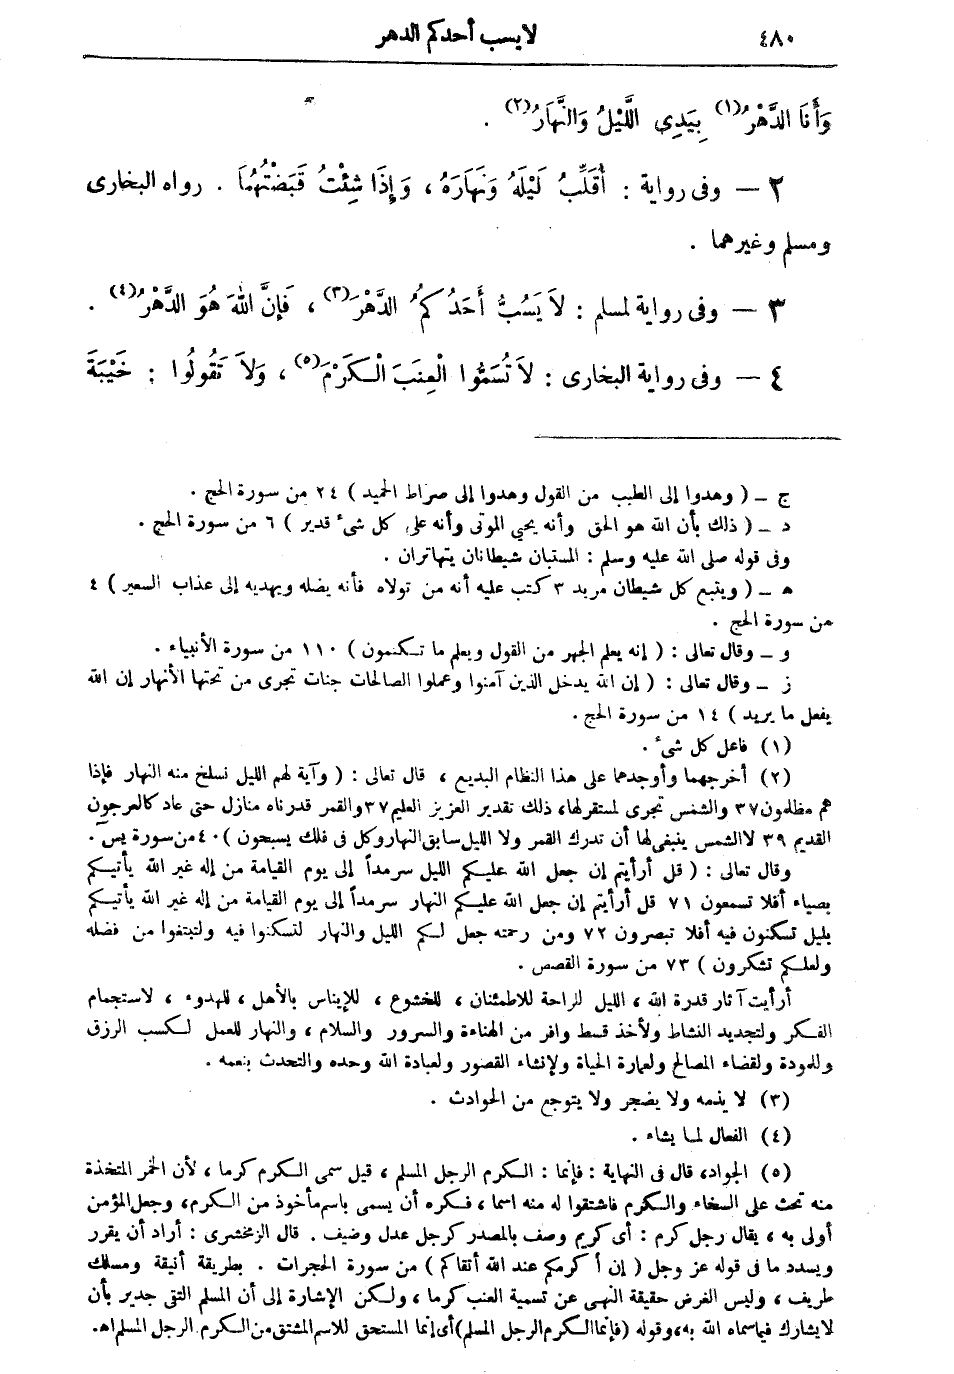 ٤٨٠ لا يسب أحدكم الدهر
وَأَنَا الدَّهْرُ(١) بِيَدِى اللَّيْلُ وَالنَّهَارُ(٢) .
٢ — وفى رواية : أُقَلِّبُ لَيْلَهُ وَنَهَارَهُ ، وَإِذَا شِئْتُ قَبَضْتُهُمَا . رواه البخارى
ومسلم وغيرهما .
٣ — وفى رواية لمسلم : لاَ يَسُبُّ أَحَدُكُمُ الدَّهْرَ(٣) ، فَإِنَّ اللهَ هُوَ الدَّهْرُ(٤) .
٤ — وفى رواية البخارى : لاَ تُسَمُّوا الْعِنَبَ الْكَرْمَ(٥) ، وَلاَ تَقُولُوا : خَيْبَةَ
ج – ( وهدوا إلى الطيب من القول وهدوا إلى صراط الحميد ) ٢٤ من سورة الحج .
د – ( ذلك بأن الله هو الحق وأنه يحيي الموتى وأنه على كل شىء قدير ) ٦ من سورة الحج .
وفى قوله صلى الله عليه وسلم : المستبان شيطانان يتهاتران .
ه – ( ويتبع كل شيطان مريد ٣ كتب عليه أنه من تولاه فأنه يضله ويهديه إلى عذاب السعير ) ٤
من سورة الحج .
و – وقال تعالى : ( إنه يعلم الجهر من القول ويعلم ما تكتمون ) ١١٠ من سورة الأنبياء .
ز – وقال تعالى : ( إن الله يدخل الذين آمنوا وعملوا الصالحات جنات تجرى من تحتها الأنهار إن الله
يفعل ما يريد ) ١٤ من سورة الحج .
(١) فاعل كل شىء .
(٢) أخرجهما وأوجدهما على هذا النظام البديع ، قال تعالى : ( وآية لهم الليل نسلخ منه النهار فإذا
هم مظلمون ٣٧ والشمس تجرى لمستقر لها، ذلك تقدير العزيز العليم ٣٧ والقمر قدرناه منازل حتى عاد كالعرجون
القديم ٣٩ لا الشمس ينبغى لها أن تدرك القمر ولا الليل سابق النهار وكل فى فلك يسبحون ) ٤٠ من سورة يس .
وقال تعالى : ( قل أرأيتم إن جعل الله عليكم الليل سرمداً إلى يوم القيامة من إله غير الله يأتيكم
بضياء أفلا تسمعون ٧١ قل أرأيتم إن جعل الله عليكم النهار سرمداً إلى يوم القيامة من إله غير الله يأتيكم
بليل تسكنون فيه أفلا تبصرون ٧٢ ومن رحمته جعل لكم الليل والنهار لتسكنوا فيه ولتبتغوا من فضله
ولعلكم تشكرون ) ٧٣ من سورة القصص .
أرأيت آثار قدرة الله ، الليل للراحة للاطمئنان ، للخشوع ، للإيناس بالأهل ، للهدوء ، لاستجمام
الفكر ولتجديد النشاط ولأخذ قسط وافر من الهناءة والسرور والسلام ، والنهار للعمل لكسب الرزق
وللمودة ولقضاء المصالح ولعمارة الحياة ولإنشاء القصور ولعبادة الله وحده والتحدث بنعمه .
(٣) لا يذمه ولا يضجر ولا يتوجع من الحوادث .
(٤) الفعال لما يشاء .
(٥) الجواد، قال فى النهاية : فإنما : الكرم الرجل المسلم ، قيل سمى الكرم كرما ، لأن الخمر المتخذة
منه تحث على السخاء والكرم فاشتقوا له منه اسما ، فكره أن يسمى باسم مأخوذ من الكرم، وجعل المؤمن
أولى به ، يقال رجل كرم : أى كريم وصف بالمصدر كرجل عدل وضيف . قال الزمخشرى : أراد أن يقرر
ويسدد ما فى قوله عز وجل ( إن أكرمكم عند الله أتقاكم ) من سورة الحجرات . بطريقة أنيقة ومسلك
طريف ، وليس الغرض حقيقة النهى عن تسمية العنب كرما ، ولكن الإشارة إلى أن المسلم التقى جدير بأن
لا يشارك فيما سماه الله به، وقوله ( فإنما الكرم الرجل المسلم ) أى إنما المستحق للاسم المشتق من الكرم الرجل المسلم اه.